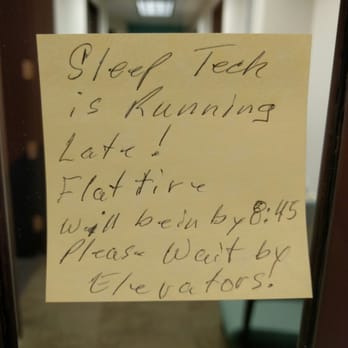 Sleep Tech
is Running
Late!
Flat tire
will be in by 8:45
Please Wait by
Elevators!